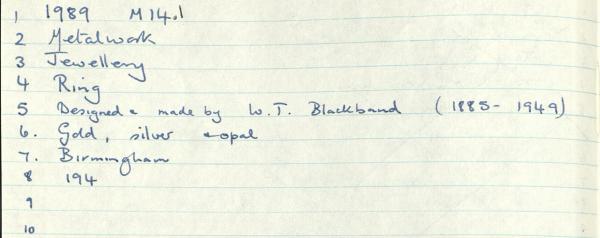 1 1989 M14.1
2 Metalwork
3 Jewellery
4 Ring
5 Designed & made by W.T. Blackband (1885-1949)
6. Gold, silver & opal
7. Birmingham
8 194
9
10